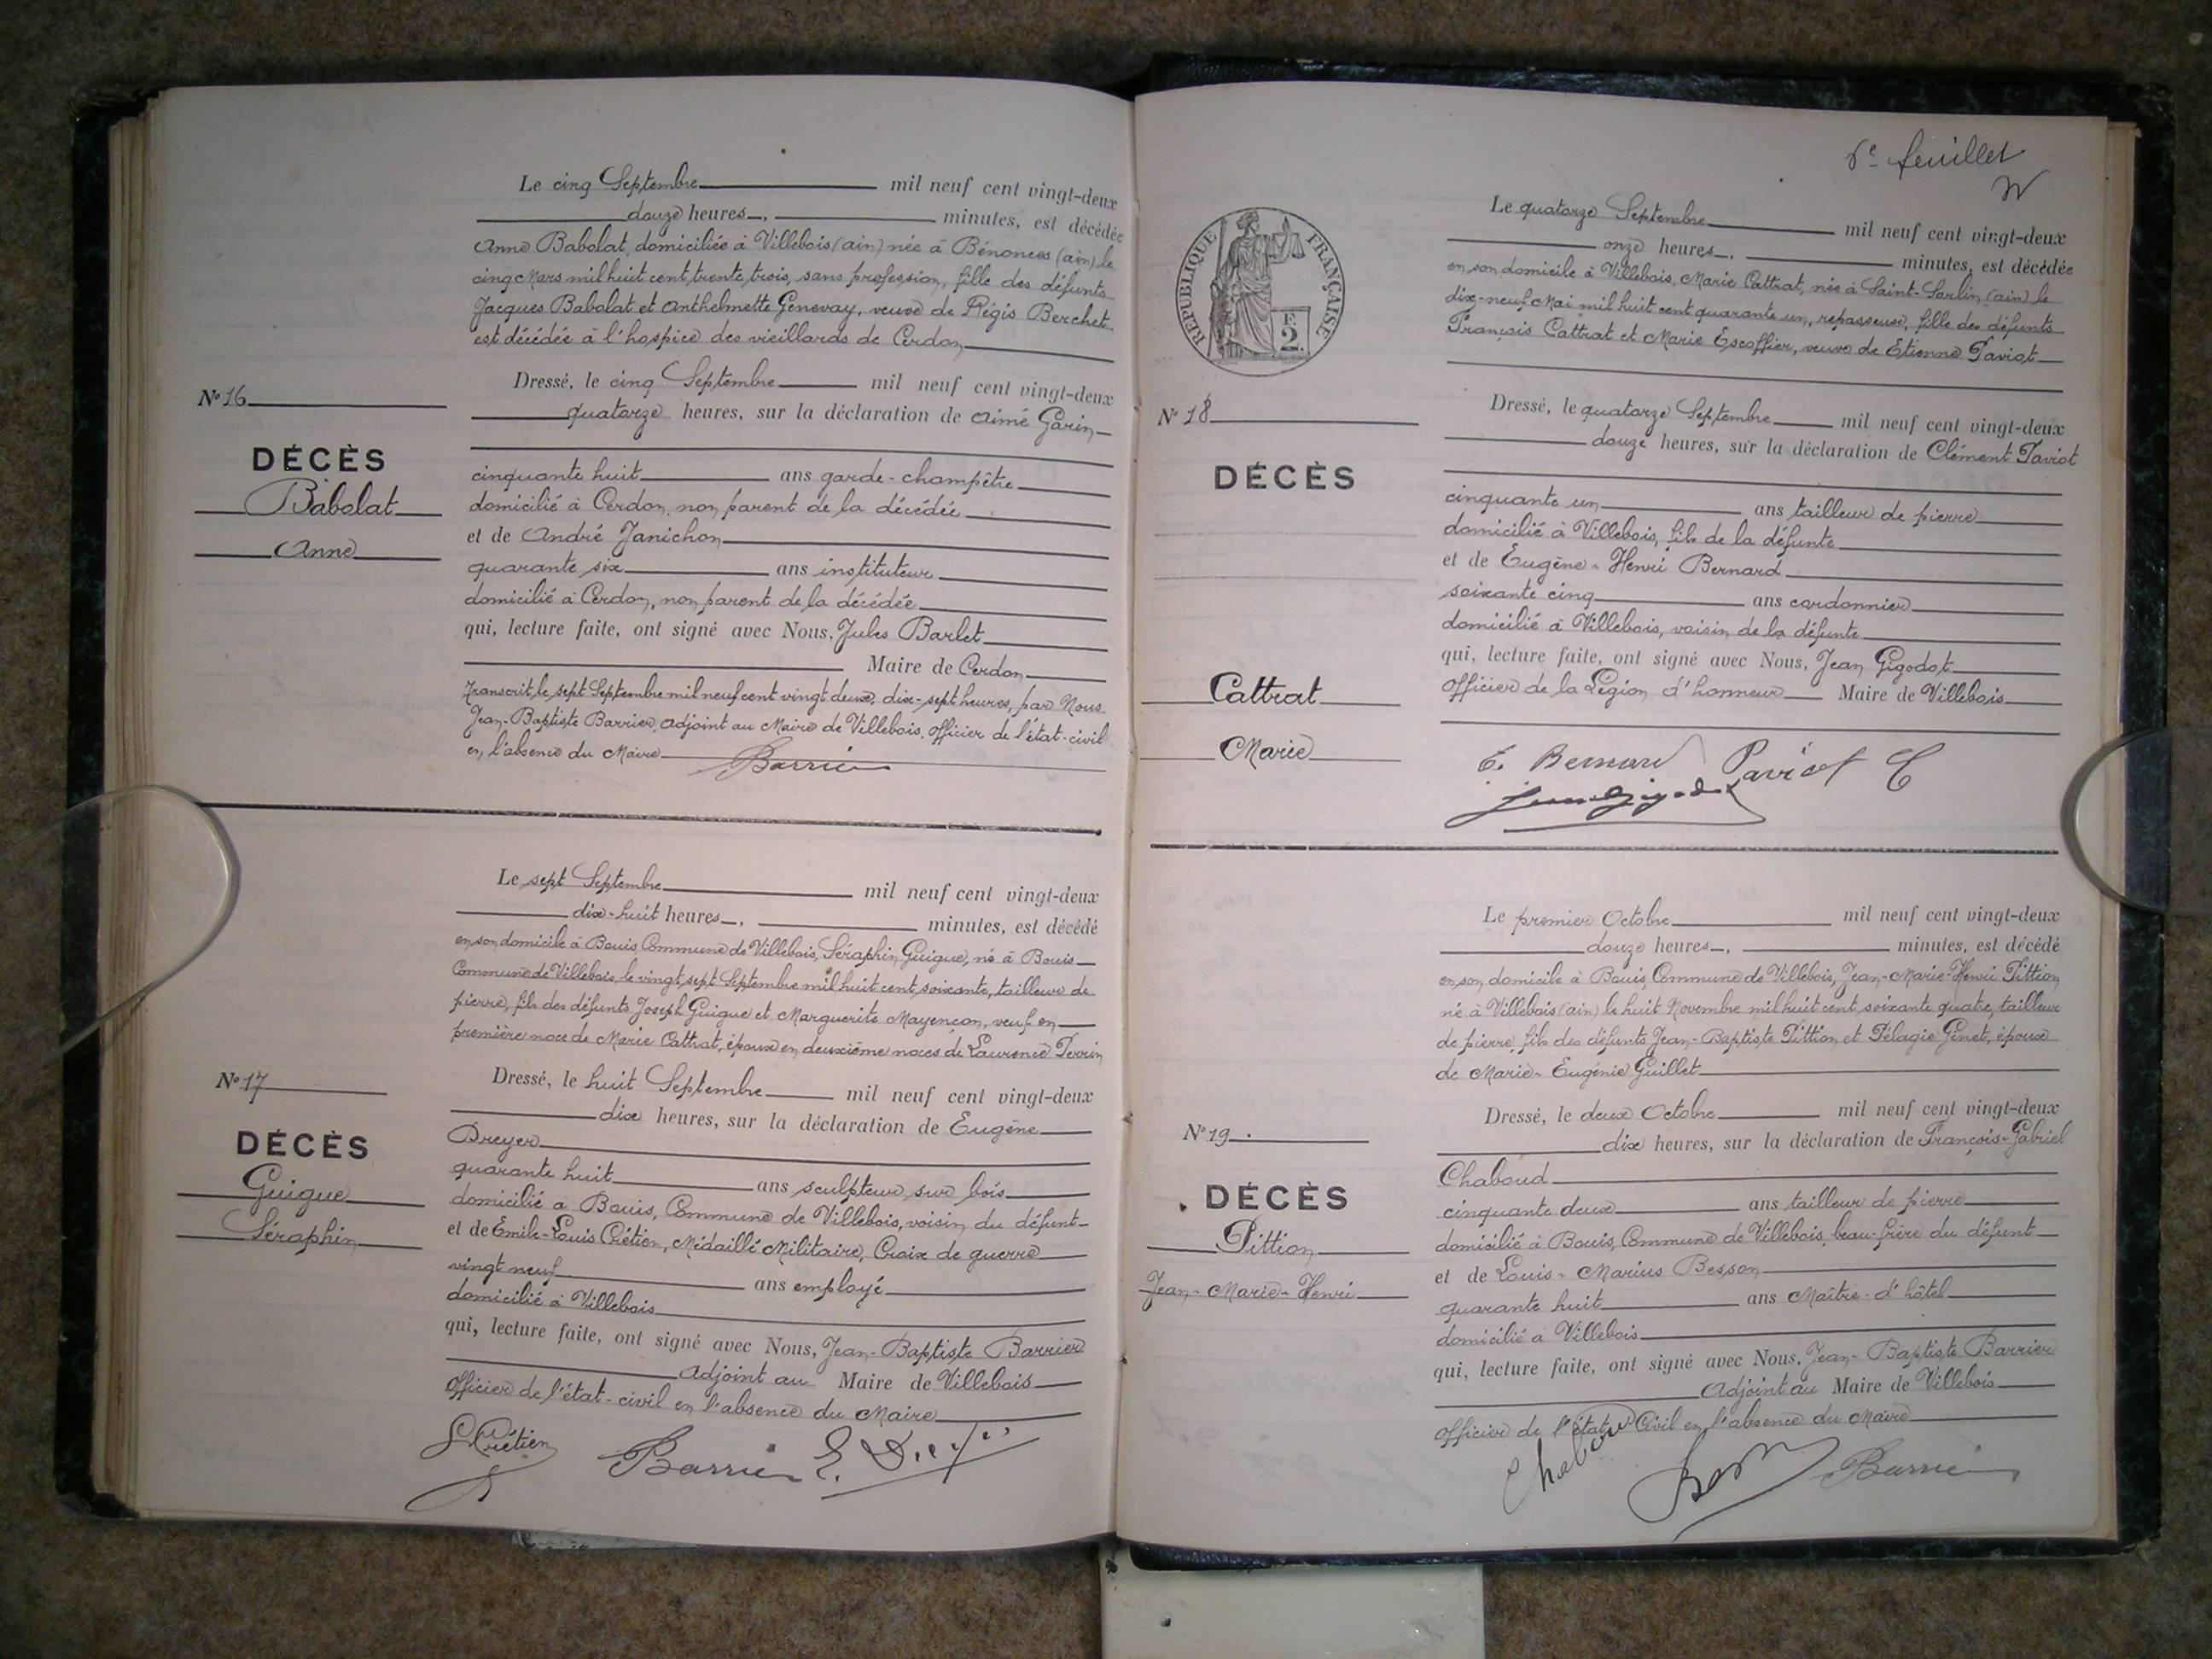 Le cinq Septembre mil neuf cent vingt-deux
douze heures, minutes, est décédée
Anne Babolat, domiciliée à Villebois (ain) née à Bénonces (ain) le
cinq Mars mil huit cent trente trois, sans profession, fille des défunts
Jacques Babolat et Anthelmette Genevay, veuve de Régis Berchet
est décédée à l'hospice des vieillards de Cerdon
Dressé, le cinq Septembre mil neuf cent vingt-deux
quatorze heures, sur la déclaration de Aimé Garin
cinquante huit ans garde-champêtre
domicilié à Cerdon, non parent de la décédée
et de André Janichon
quarante six ans instituteur
domicilié à Cerdon, non parent de la décédée
qui, lecture faite, ont signé avec Nous, Jules Barlet
Maire de Cerdon
Transcrit, le sept Septembre mil neuf cent vingt deux, dix-sept heures, par Nous
Jean-Baptiste Barrier, adjoint au Maire de Villebois, officier de l'état-civil
en l'absence du Maire Barrier
N° 16
DÉCÈS
Babolat
Anne
Le sept Septembre mil neuf cent vingt-deux
dix-huit heures, minutes, est décédé
en son domicile à Bouis Commune de Villebois, Séraphin Guigue, né à Bouis
Commune de Villebois, le vingt sept Septembre mil huit cent soixante, tailleur de
pierre, fils des défunts Joseph Guigue et Marguerite Mayençon, veuf en
première noce de Marie Cattrat, époux en deuxième noces de Laurence Perrin
Dressé, le huit Septembre mil neuf cent vingt-deux
dix heures, sur la déclaration de Eugène
Dreyer
quarante huit ans sculpteur sur bois
domicilié à Bouis, Commune de Villebois, voisin du défunt
et de Emile-Louis Crétien, Médaillé Militaire, Croix de guerre
vingt neuf ans employé
domicilié à Villebois
qui, lecture faite, ont signé avec Nous, Jean-Baptiste Barrier
Adjoint au Maire de Villebois
Officier de l'état-civil en l'absence du Maire
Crétien Barrier E. Dreyer
N° 17
DÉCÈS
Guigue
Séraphin
6e feuillet
RÉPUBLIQUE FRANÇAISE
F.
2.
Le quatorze Septembre mil neuf cent vingt-deux
onze heures, minutes, est décédée
en son domicile à Villebois, Marie Cattrat, née à Saint-Sorlin (ain) le
dix-neuf Mai mil huit cent quarante un, repasseuse, fille des défunts
François Cattrat et Marie Escoffier, veuve de Etienne Paviot
Dressé, le quatorze Septembre mil neuf cent vingt-deux
douze heures, sur la déclaration de Clément Paviot
cinquante un ans tailleur de pierre
domicilié à Villebois, fils de la défunte
et de Eugène-Henri Bernard
soixante cinq ans cordonnier
domicilié à Villebois, voisin de la défunte
qui, lecture faite, ont signé avec Nous, Jean Gigodot
Officier de la Légion d'honneur Maire de Villebois
E. Bernard Paviot C
Jean Gigodot
N° 18
DÉCÈS
Cattrat
Marie
Le premier Octobre mil neuf cent vingt-deux
douze heures, minutes, est décédé
en son domicile à Bouis, Commune de Villebois, Jean-Marie-Henri Pittion
né à Villebois (ain) le huit Novembre mil huit cent soixante quatre, tailleur
de pierre, fils des défunts Jean-Baptiste Pittion et Pélagie Ginet, époux
de Marie-Eugénie Guillet
Dressé, le deux Octobre mil neuf cent vingt-deux
dix heures, sur la déclaration de François-Gabriel
Chaboud
cinquante deux ans tailleur de pierre
domicilié à Bouis, Commune de Villebois, beau-frère du défunt
et de Louis-Marius Besson
quarante huit ans Maître-d'hôtel
domicilié à Villebois
qui, lecture faite, ont signé avec Nous, Jean-Baptiste Barrier
Adjoint au Maire de Villebois
Officier de l'état Civil en l'absence du Maire
Chaboud Barrier
N° 19
DÉCÈS
Pittion
Jean-Marie-Henri